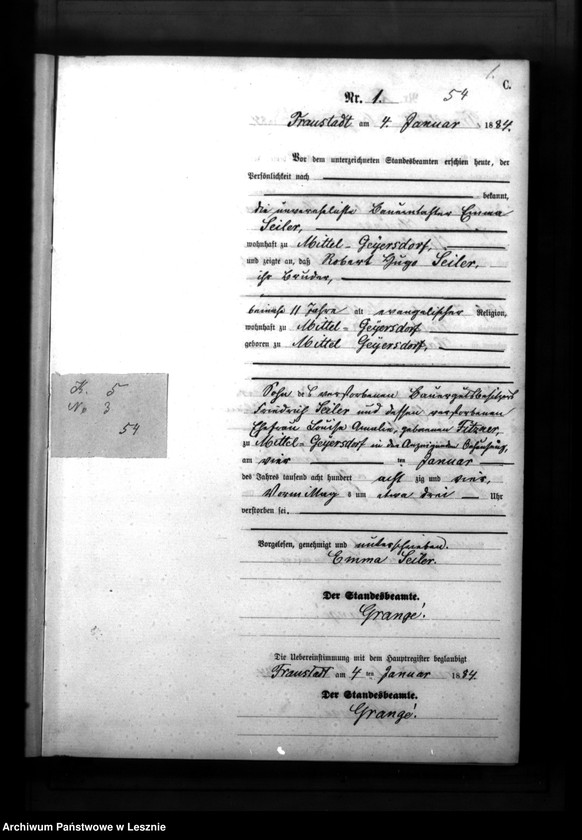 1.
C.
Nr. 1. 54
Fraustadt am 4. Januar 1884.
Vor dem unterzeichneten Standesbeamten erschien heute, der
Persönlichkeit nach
bekannt,
die unverehelichte Bauerntochter Emma
Seiler,
wohnhaft zu Mittel-Geyersdorf,
und zeigte an, daß Robert Hugo Seiler,
ihr Bruder,
beinahe 11 Jahre alt evangelischer Religion,
wohnhaft zu Mittel-Geyersdorf
geboren zu Mittel Geyersdorf,
Sohn des verstorbenen Bauergutsbesitzers
Friedrich Seiler und dessen verstorbenen
Ehefrau Louise Amalie, geborenen Fitzner,
zu Mittel-Geyersdorf in der Anzeigenden Behausung,
am vier ten Januar
des Jahres tausend acht hundert acht zig und vier,
Vormittags um etwa drei Uhr
verstorben sei.
Vorgelesen, genehmigt und unterschrieben.
Emma Seiler.
Der Standesbeamte.
Grangé.
Die Uebereinstimmung mit dem Hauptregister beglaubigt
Fraustadt am 4 ten Januar 1884
Der Standesbeamte.
Grangé.
K. 5
No 3
54
Archiwum Państwowe w Lesznie